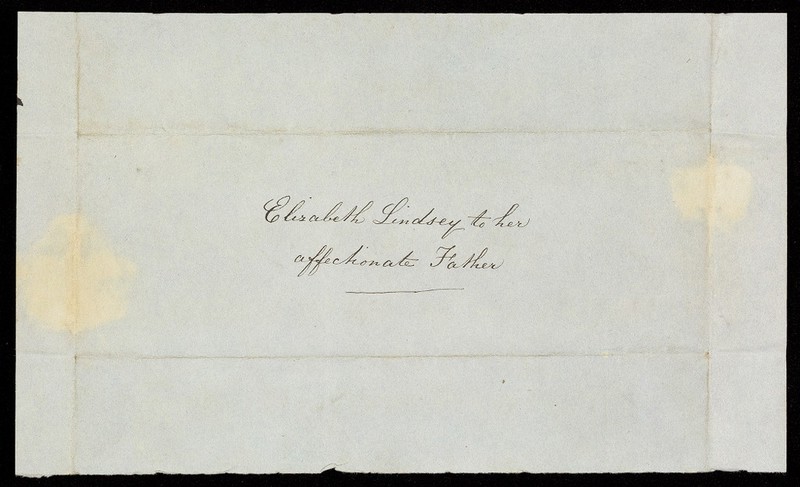 Elizabeth Lindsey to her
affectionate Father